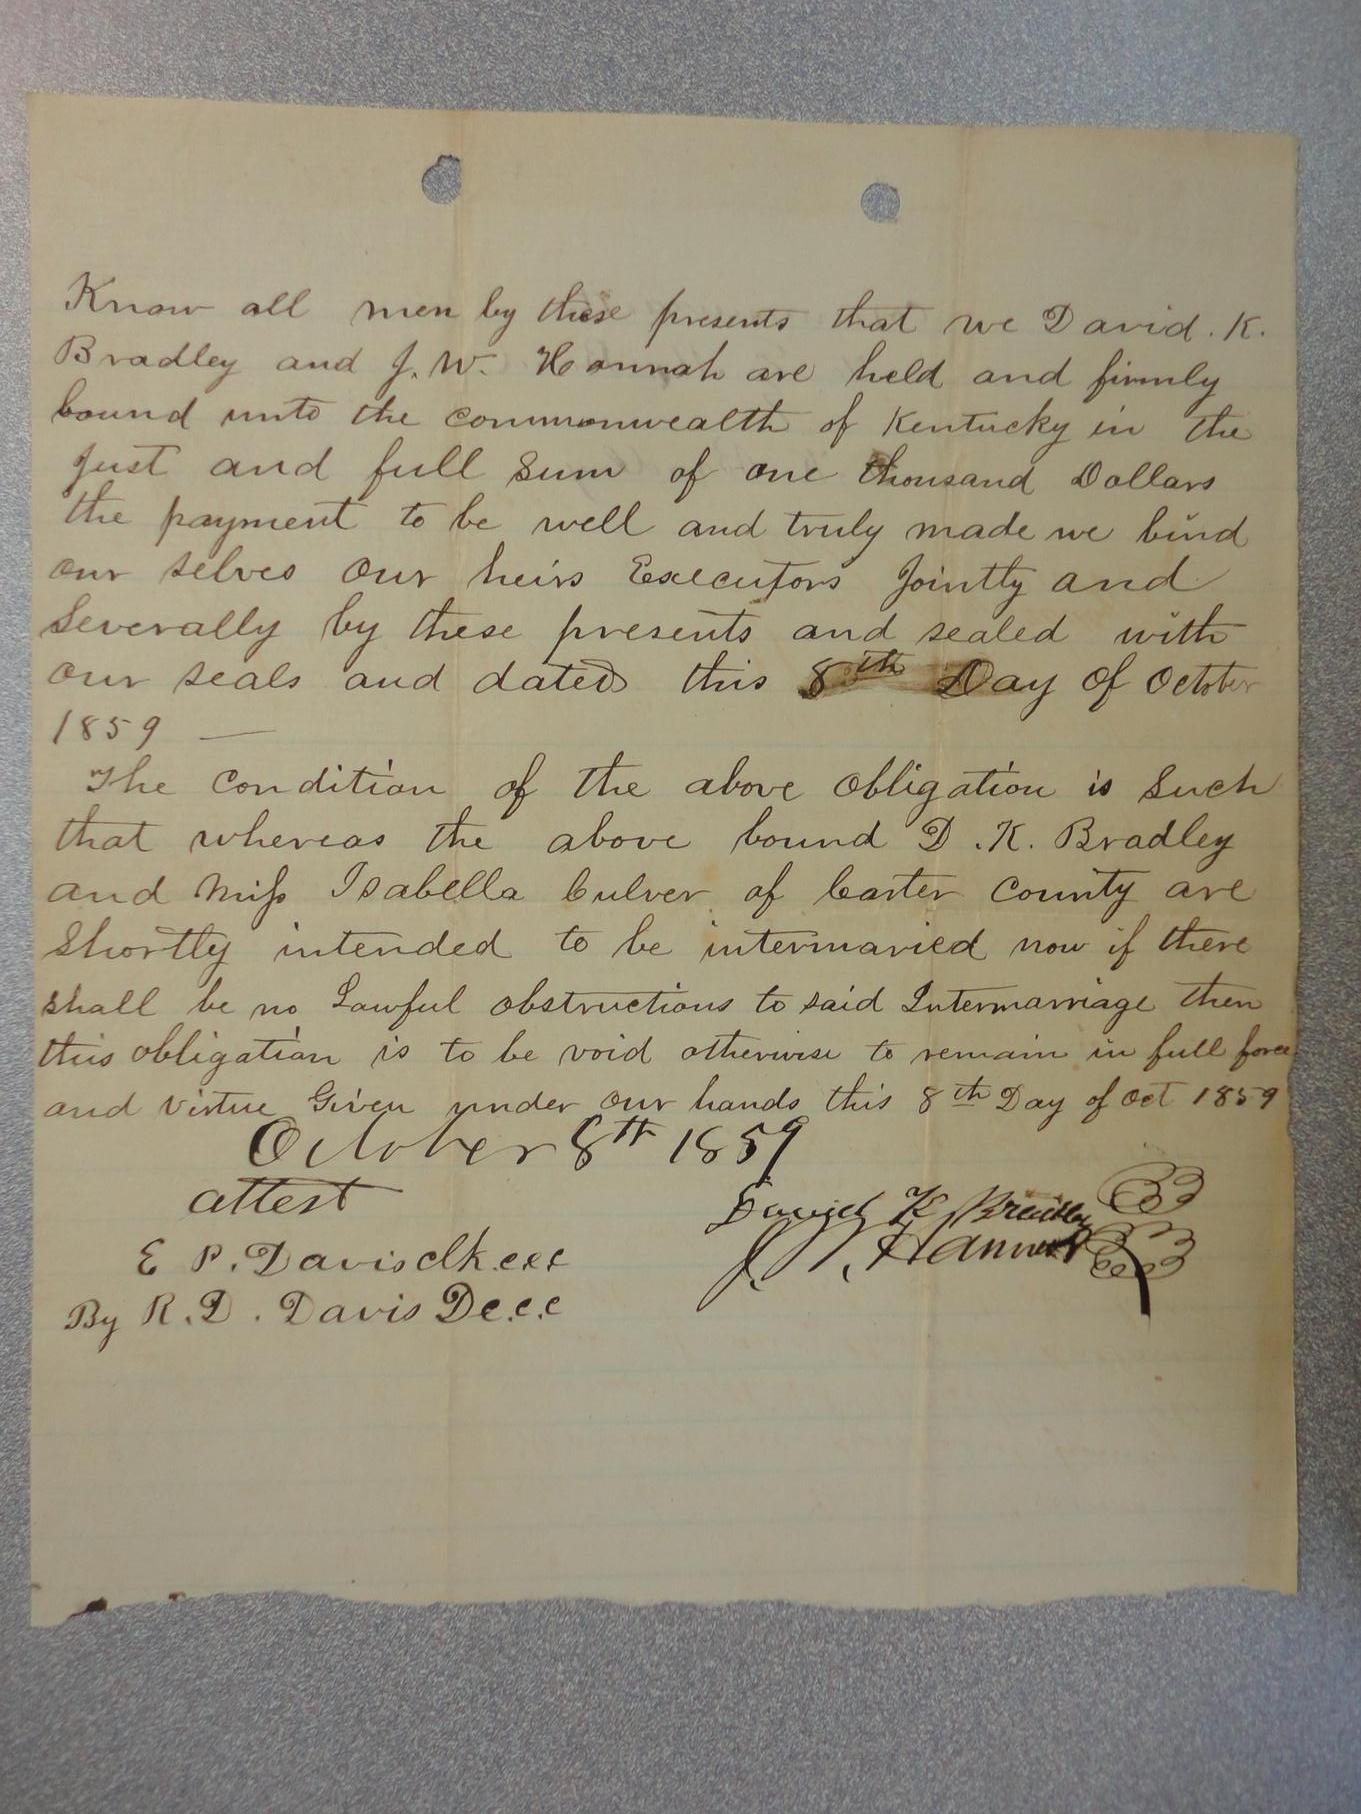 Know all men by these presents that we David. K.
Bradley and J. W. Hannah are held and firmly
bound unto the commonwealth of Kentucky in the
just and full sum of one thousand Dollars
the payment to be well and truly made we bind
our selves our heirs Executors Jointly and
Severally by these presents and sealed with
our seals and dated this 8th Day of October
1859 —
The condition of the above obligation is Such
that whereas the above bound D. K. Bradley
and Miss Isabella Culver of Carter county are
Shortly intended to be intermaried now if there
shall be no Lawful obstructions to said Intermarriage then
this obligation is to be void otherwise to remain in full force
and virtue Given under our hands this 8th Day of Oct 1859
October 8th 1859
attest
David K Bradley
J. W. Hannah
E P. Davis clk.c.c.c
By R. D. Davis D.c.c.c